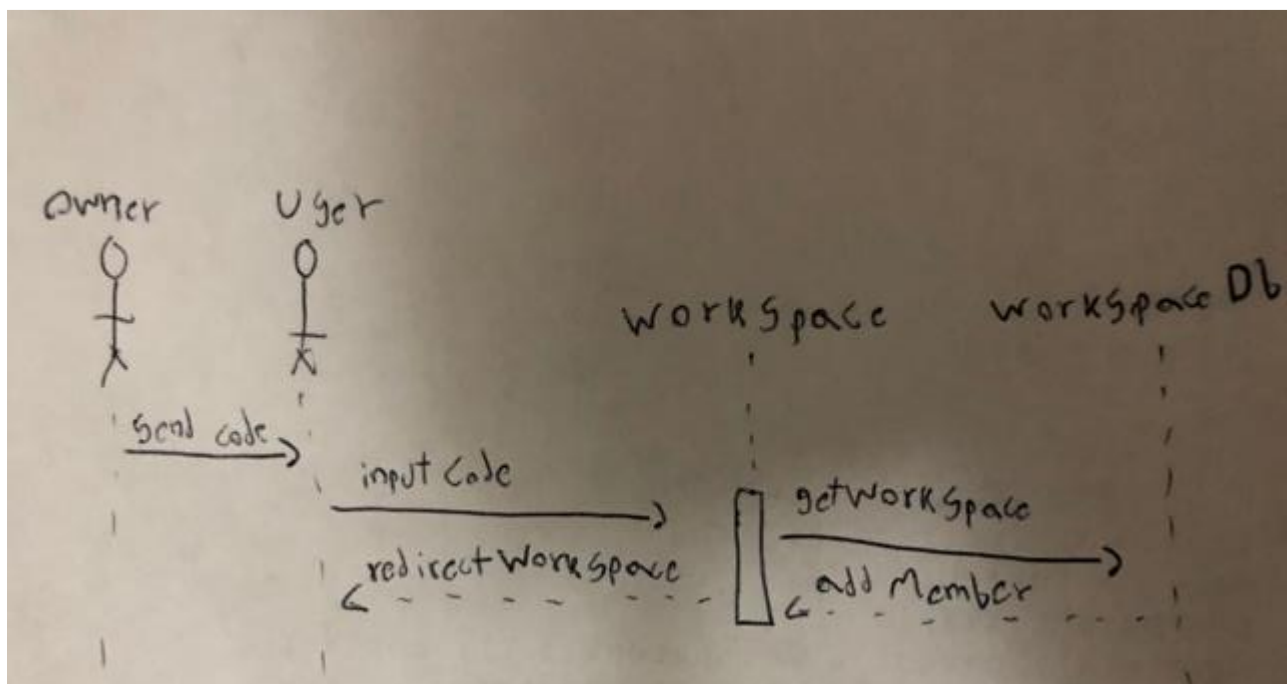 Owner
User
WorkSpace
WorkSpace Db
Send code
input Code
getWorkSpace
redirect WorkSpace
add Member